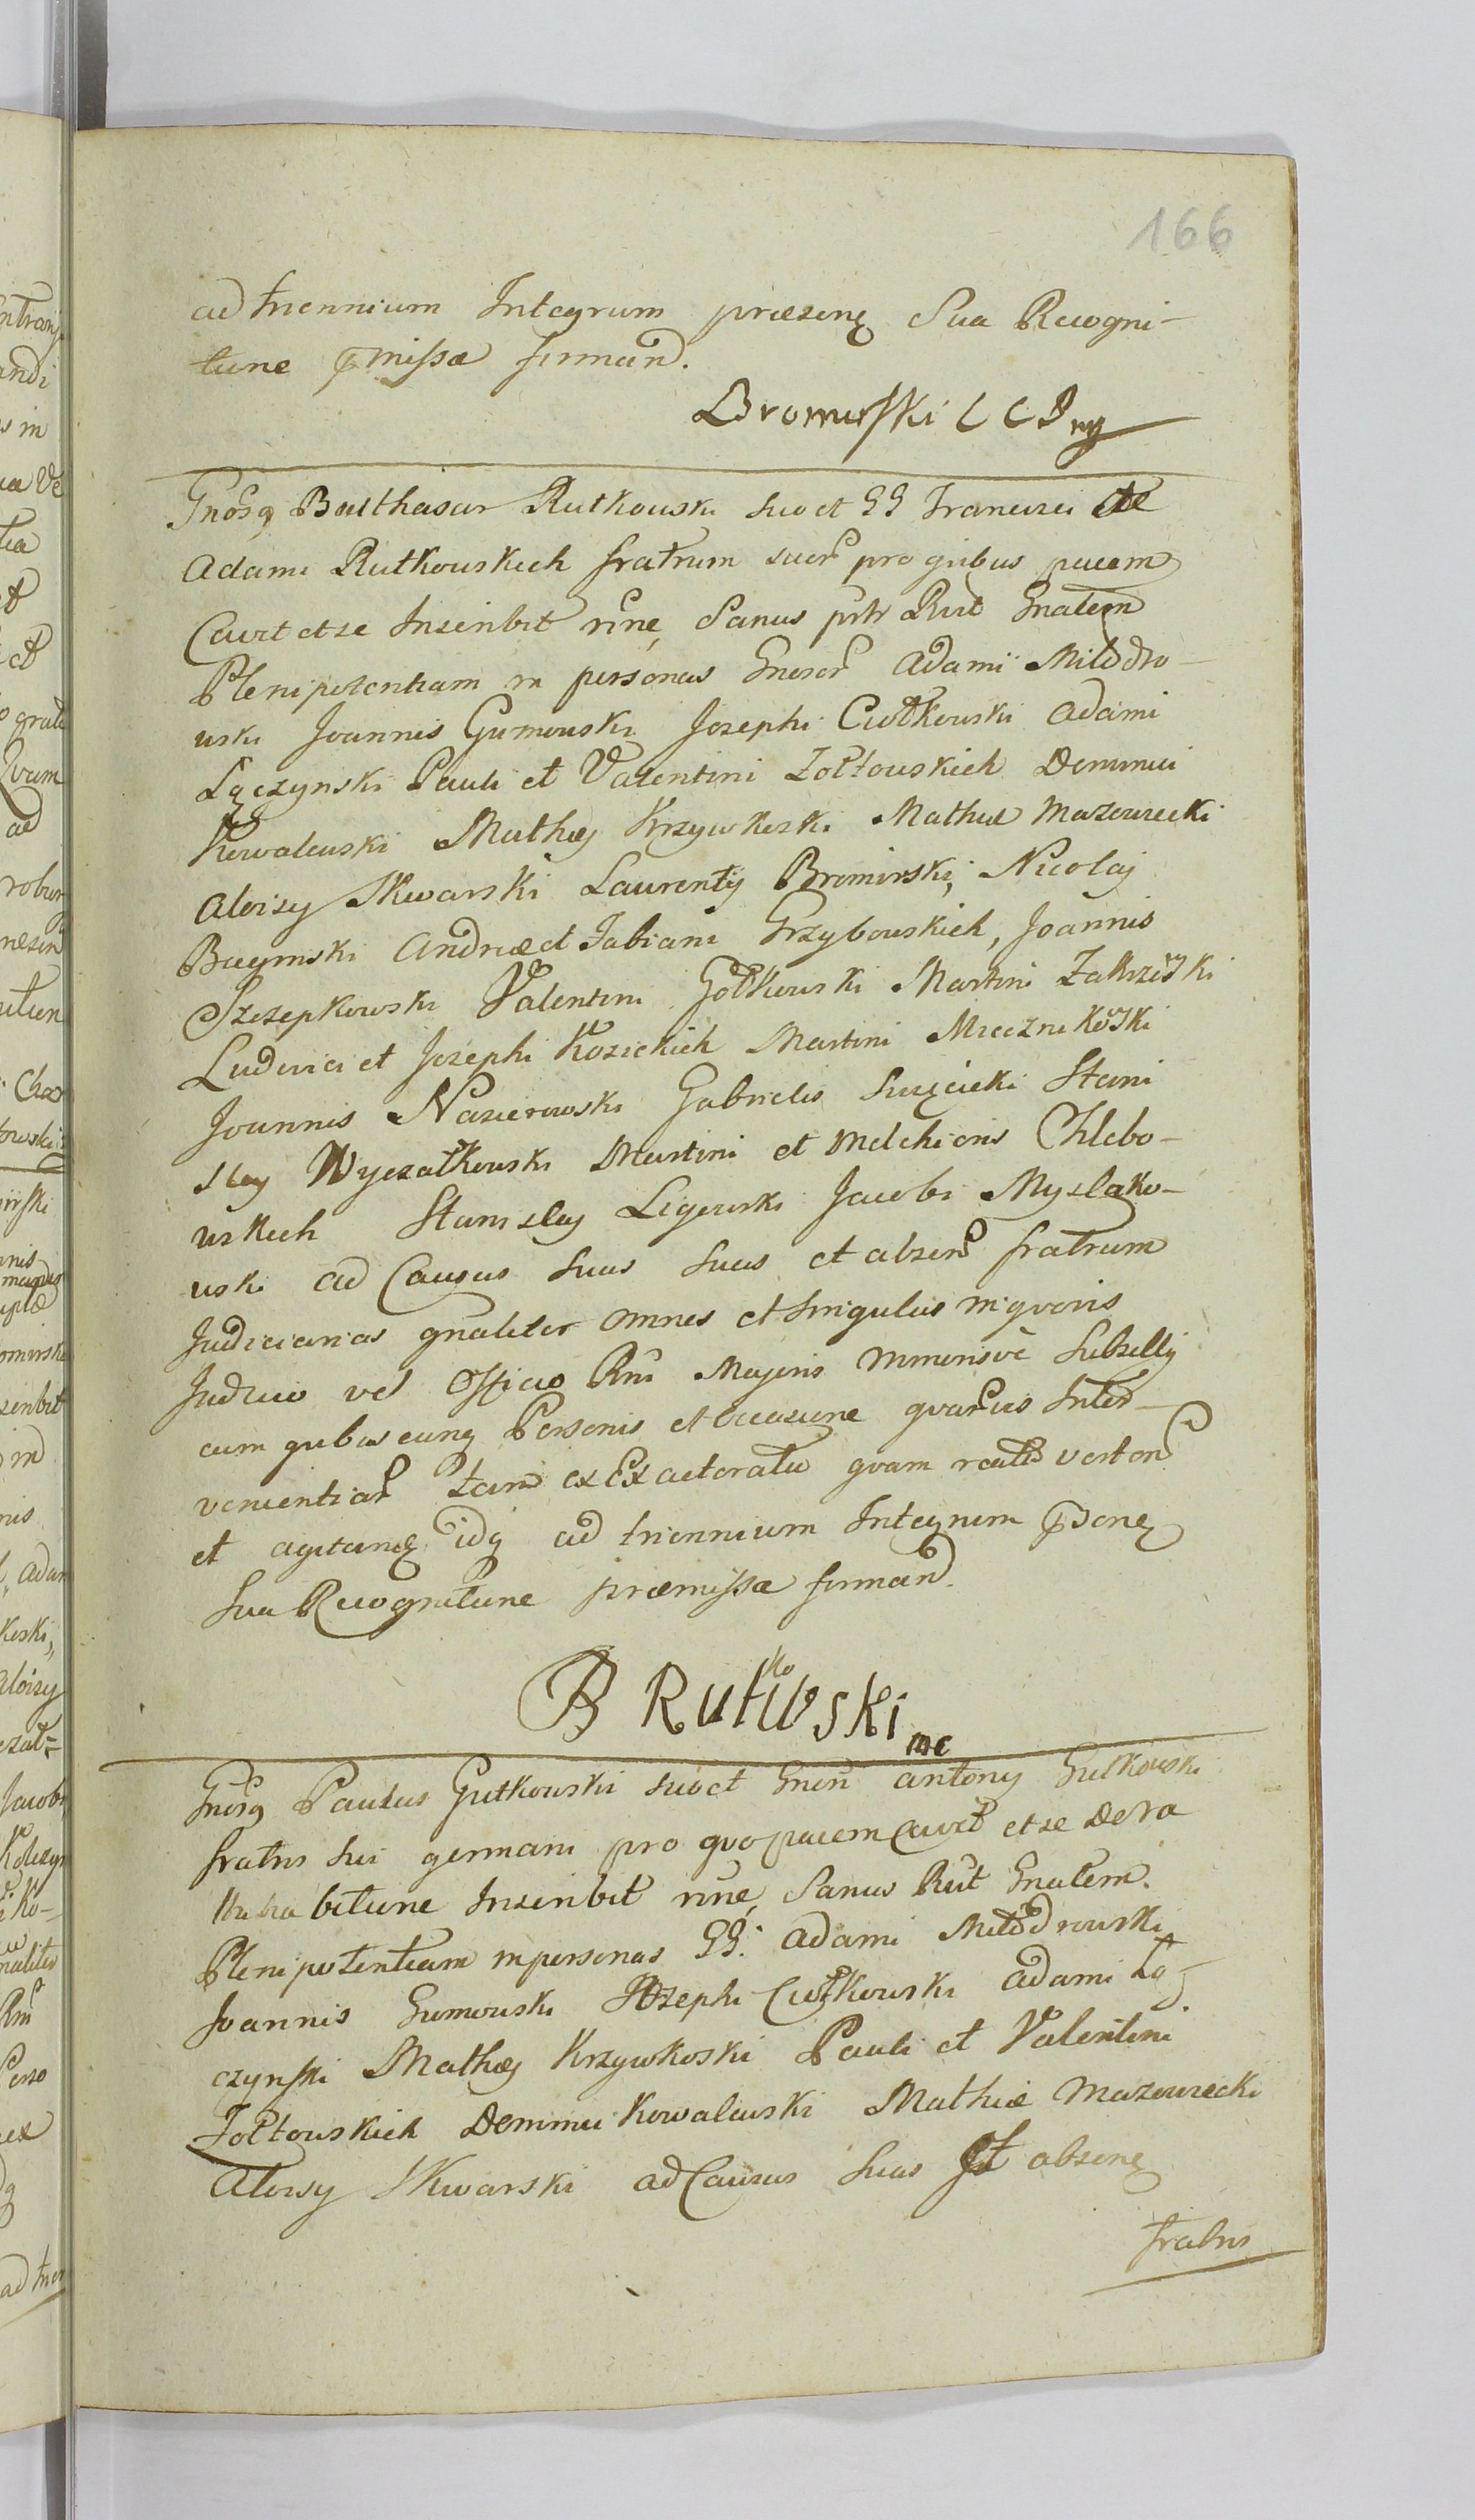 166
ad triennium Integrum præsenę Sua Recogni-
tione pmissa firmand.
Bromirski
Gnosq Balthasar Rutkowski suo et GG Francisci ac
Adami Rutkowskich fratrum suor pro quibus pacem
Cavet et se Inscribit rñe, Sanus pitr Rut Gnalem
Plenipotentiam in personas Gneror Adami Miłodro-
wski Joannis Gumowski Josephi Ciołkowski Adami
Lączynski Pauli et Valentini Zołtowskich Dominici
Kowalewski Mathæj Krzywkoski Mathiæ Mazowiecki
Aloisy Skwarski Laurentij Bromirski, Nicolaj
Buymski Andreæ et Fabiani Grzybowskich, Joannis
Szczepkowski Valentini Gołkowski Martini Zakrzewski
Ludovici et Josephi Kozickich Martini Miecznikowski
Joannis Nasierowski Gabrielis Swięcicki Stani
slaj Wyczałkowski Martini et Melchioris Chlebo-
wskich Stanislaj Ligowski Jacobi Myslako-
wski ad Causas suas suas et absen fratrum
Judiciarias gnaliter omnes et singulas in quovis
Judicio vel Officio Rni Majoris Minorisve Subselly
cum quibuscunq Personis et occasione quarvis Inter-
venientiar tam ex Exactoratu quam reatu verten
et agitanę idq ad triennium Integrum psenę
Sua Recognitione præmissa firmand.
B Rutkowski mp
Gnosq Paulus Gutkowski suo et Gnen Antony Gutkowski
fratris sui germani pro quo pacem Cavet et se De ra
tihabitione Inscribit rñe, Sanus Rut Gnalem.
Plenipotentiam in personas GG. Adami Miłodrowski
Joannis Gumowski Josephi Ciołkowski Adami Lą-
czynski Mathæj Krzywkoski Pauli et Valentini
Zołtowskich Dominici Kowalewski Mathiæ Mazowiecki
Aloisy Skwarski ad Causas suas et absenę
fratris